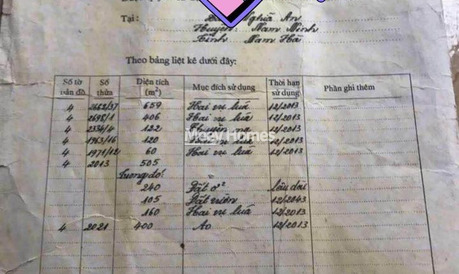 Tại: Nghĩa An
Huyện: Nam Ninh
Tỉnh Nam Hà
Theo bảng liệt kê dưới đây:
Số tờ bản đồ Số thửa Diện tích (m²) Mục đích sử dụng Thời hạn sử dụng Phần ghi thêm
4 2662/37 659 Hai vụ lúa 12/2013
4 2698/1 406 Hai vụ lúa 12/2013
4 2334/4 122 12/2013
4 1963/16 120 Hai vụ lúa 12/2013
4 1971/12 60 Hai vụ lúa 12/2013
4 2013 505
Trong đó:
240 Đất ở lâu dài
105 Đất vườn 12/2043
160 Hai vụ lúa 12/2013
4 2021 400 Ao 12/2013
Maxy Homes